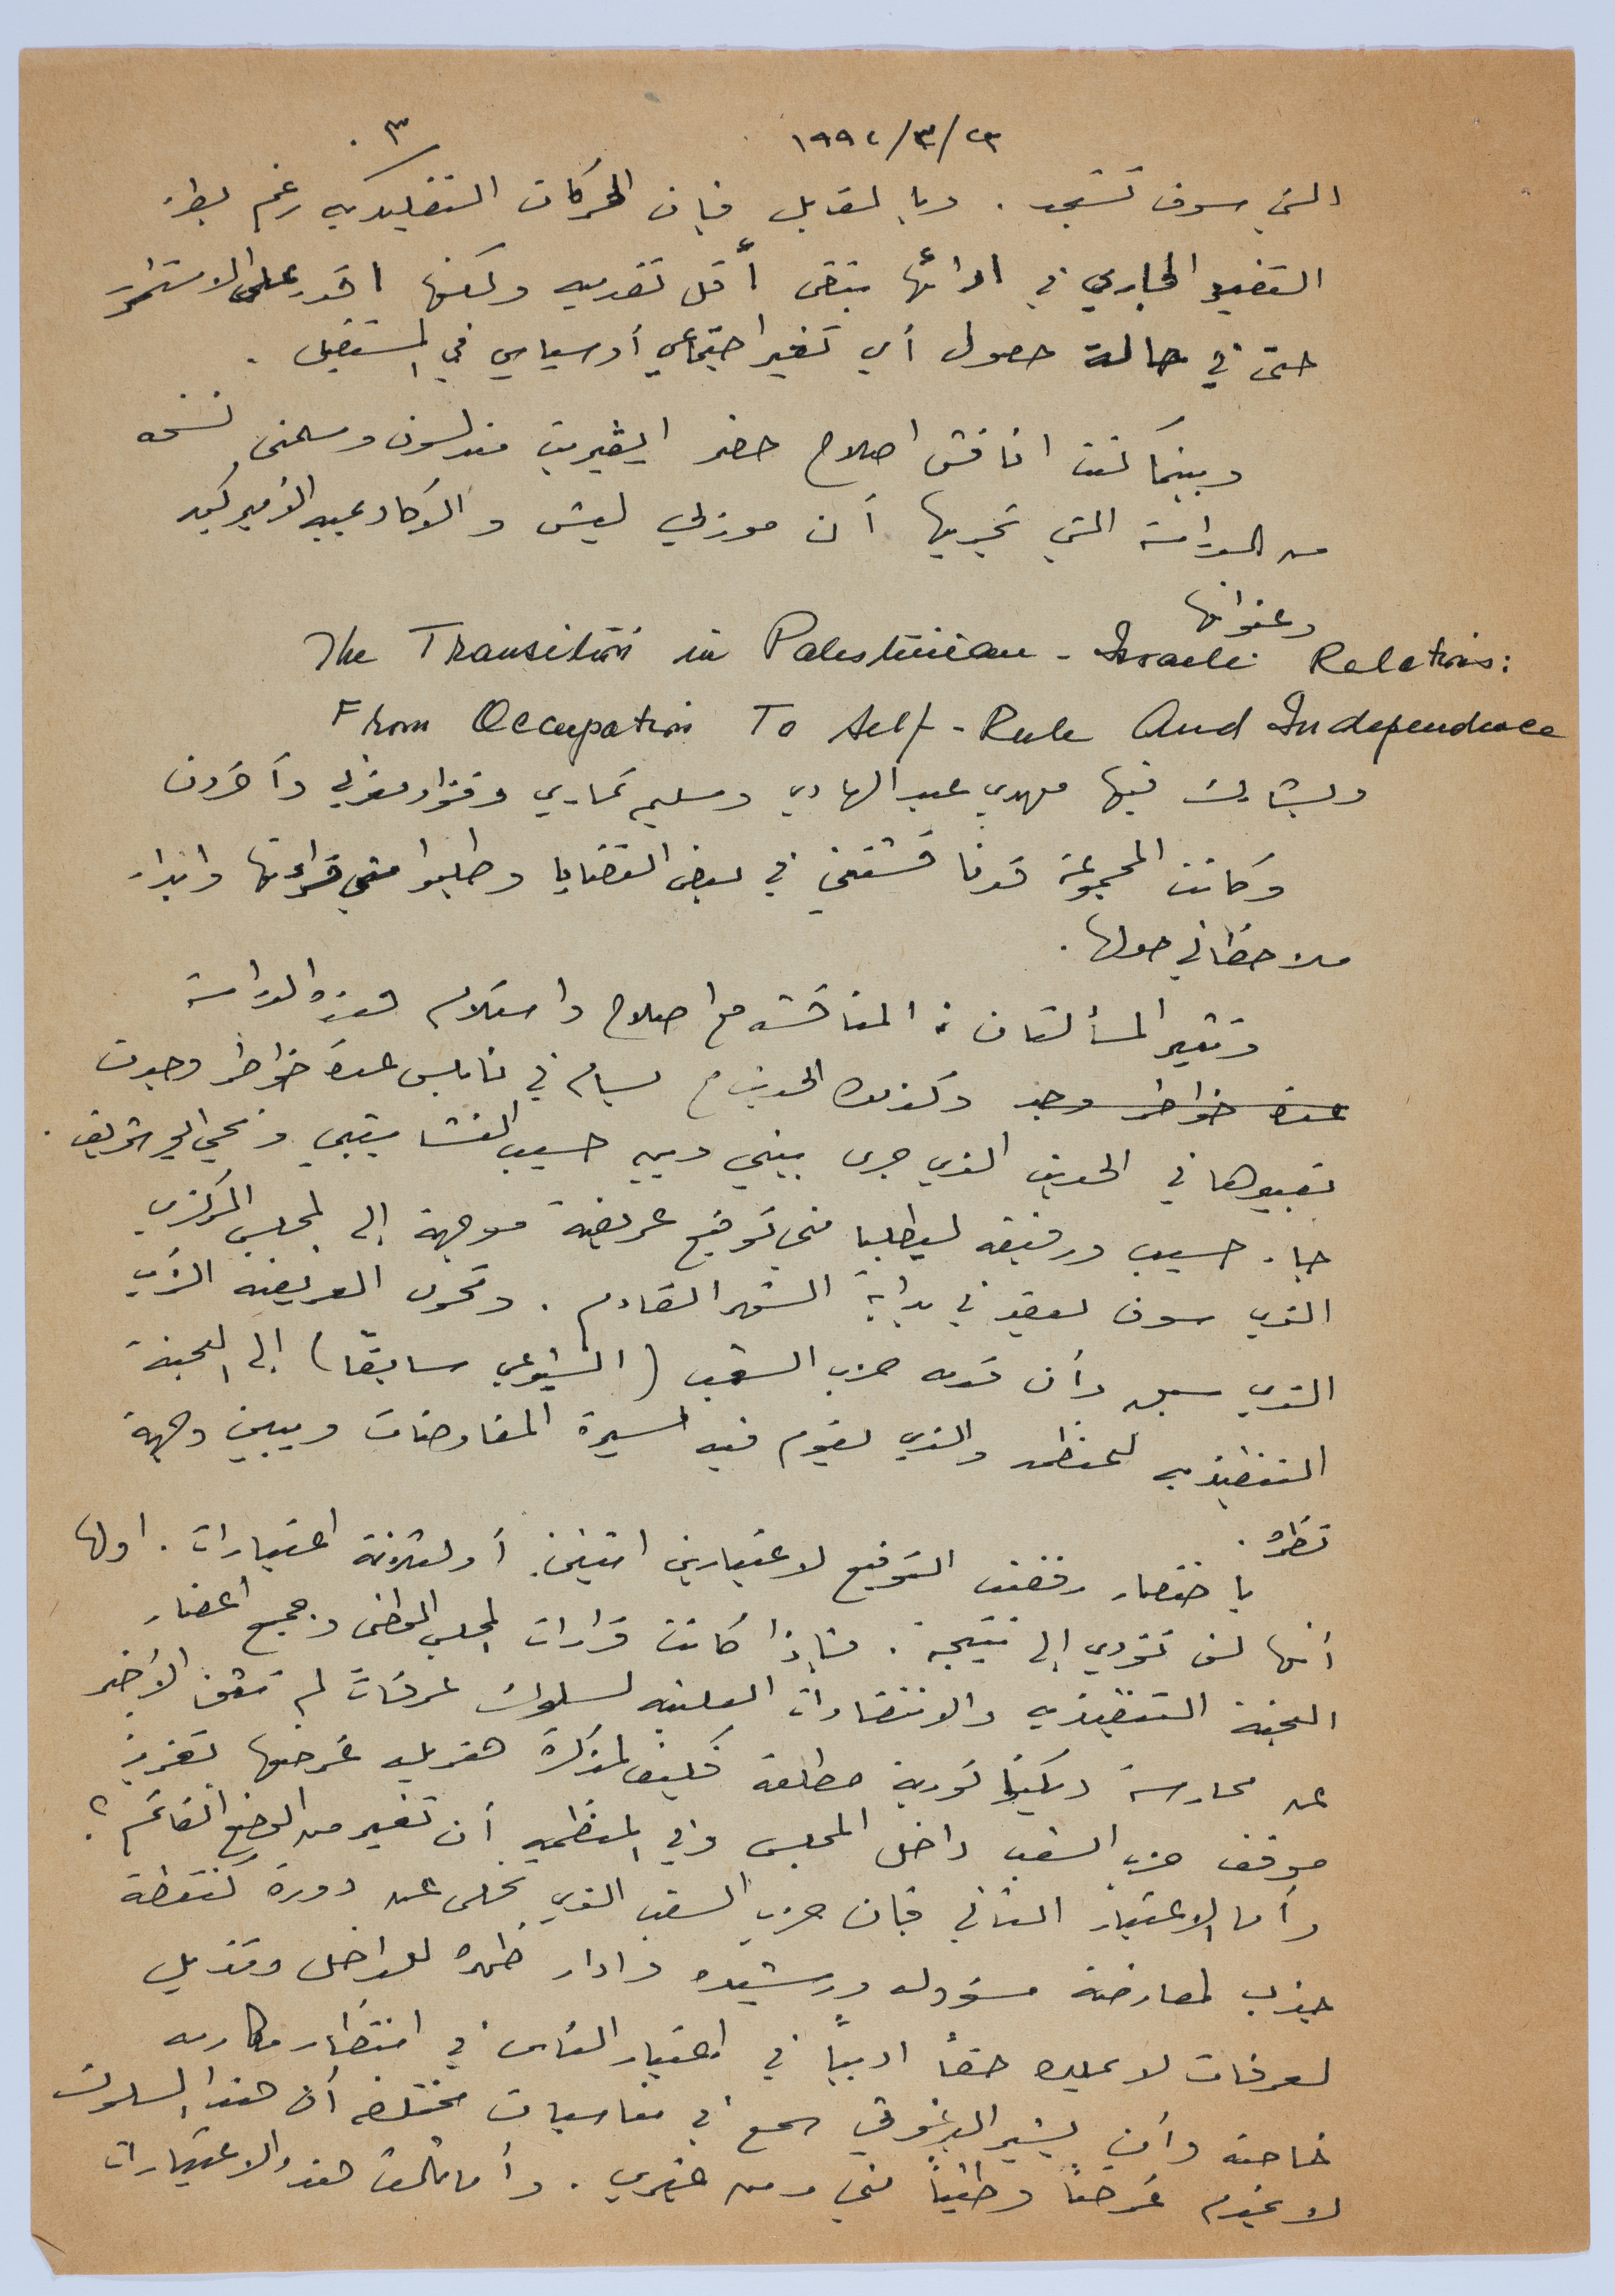 ٢٣/٣/١٩٩٤ ٣.
التي سوف تستجد. وبالمقابل فإن الحركات التقليدية رغم بطء
التغيير الجاري في ادائها تبقى أقل تقدميه ولكنها اقدر على الاستمرار
حتى في حالة حصول أي تغير اجتماعي أو سياسي في المستقبل.
وبينما كنت اناقش اصلاح حضر ايڤيريت مندلسون وسلمني نسخه
من الدراسة التي تجريها آن موزلي ليش والاكاديميه الأميركيه
وعنوانها
The Transition in Palestinian - Israeli Relations:
From Occupation To Self-Rule And Independence
ويشارك فيها مهدي عبد الهادي وسليم تماري وفؤاد مغربي وآخرون
وكانت المجموعة قد ناقشتني في بعض القضايا وطلبوا مني قراءتها وابداء
ملاحظاتي حولها.
وتثير المسألتان: المناقشه مع اصلاح واستلام هذه الدراسة
عدة خواطر وجد وكذلك الحديث مع بسام في نابلس عدة خواطر وجدت
تعبيرها في الحديث الذي جرى بيني وبين حسيب النشاشيبي و الشريف.
جاء حسيب ورفيقه ليطلبا مني توقيع عريضة موجهة إلى المجلس المركزي
الذي سوف يعقد في بداية الشهر القادم. وتحول العريضه الرأي
الذي سبق وأن قدمه حزب الشعب (الشيوعي سابقاً) إلى اللجنة
التنفيذيه للمنظمه والذي يقوم فيه مسيرة المفاوضات ويبين وجهة
نظره.
باختصار رفضت التوقيع لاعتبارين اثنين أو لثلاثة اعتبارات. اولها
أنها لن تؤدي إلى نتيجة. فإذا كانت قرارات المجلس الوطني وجميع أعضاء
اللجنة التنفيذيه والانتقادات العلنيه لسلوك عرفات لم تثن الأخير
عن ممارسة ديكتاتورية مطلقة فكيف لمذكرة هزيله غرضها تعزيز
موقف حزب الشعب داخل المجلس وفي المنظمه أن تغير من الوضع القائم؟
وأما الاعتبار الثاني فإن حزب الشعب الذي تخلى عن دوره كنقطة
جذب لمعارضة مسؤوله ورشيده وادار ظهره للداخل وتذيل
لعرفات لا يملك حقاً ادبياً في اعتبار الناس في انتظار مكارمه
خاصة وأن بشير البرغوثي سمع في مناسبات مختلفه أن هذا السلوك
لا يخدم غرضاً وطنياً مني ومن غيري. وأما ثالث هذه الاعتبارات